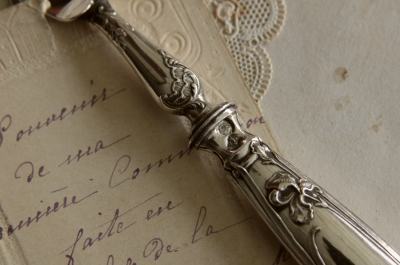 Souvenir
de ma
première Commun on
faite en
de la